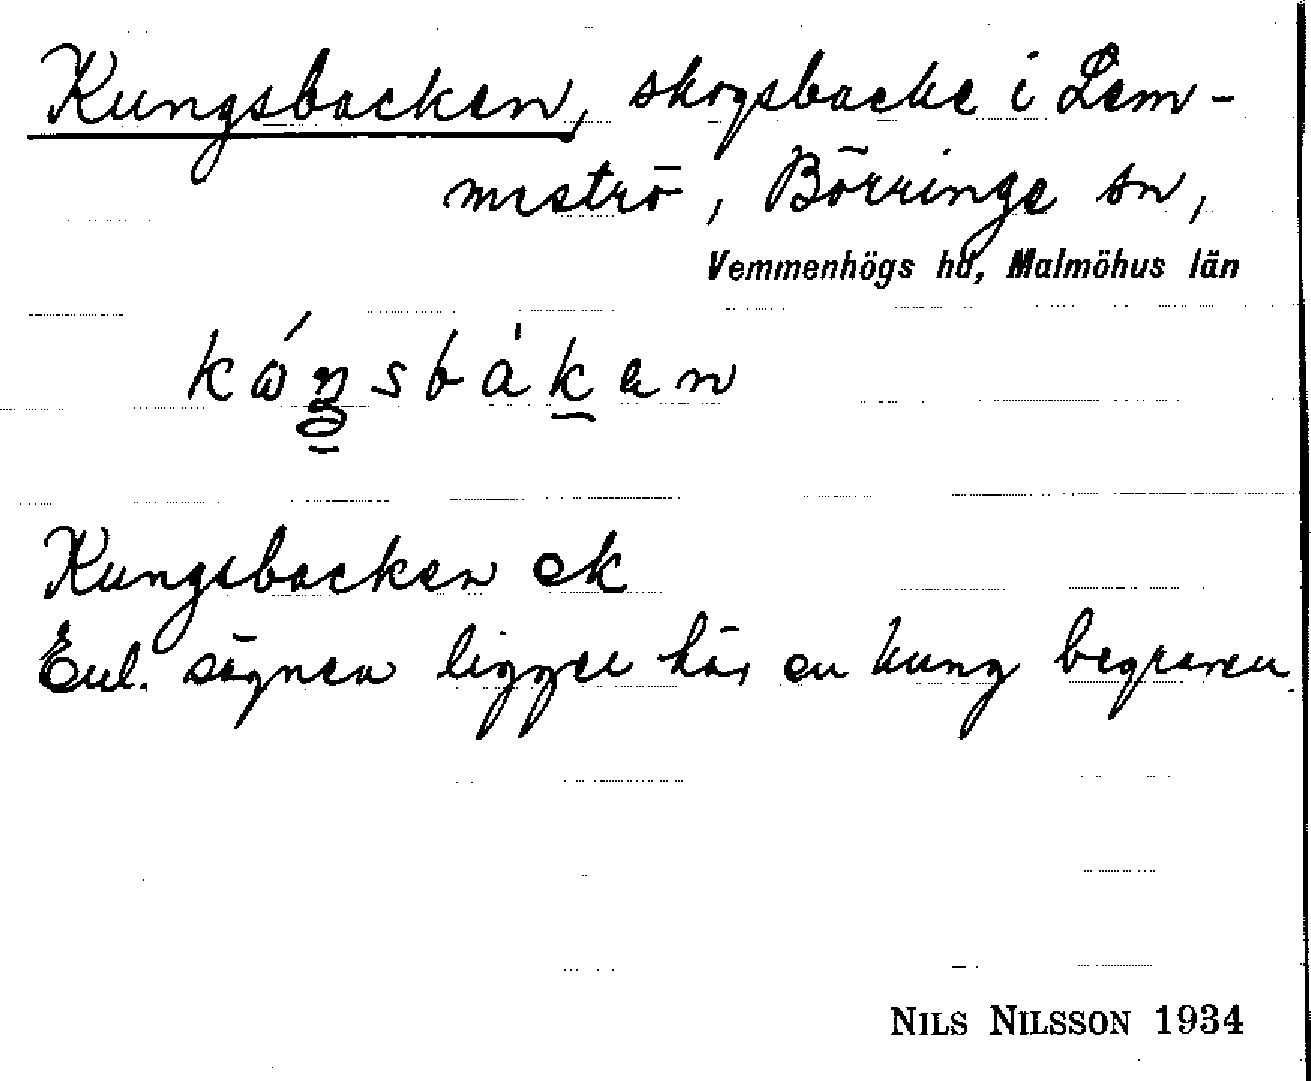 Kungsbacken, skogsbacke i Lem-
meströ, Börringe sn,
Vemmenhögs hd, Malmöhus län
Kungsbacken ek
Enl. sägnen ligger här en kung begraven.
NILS NILSSON 1934